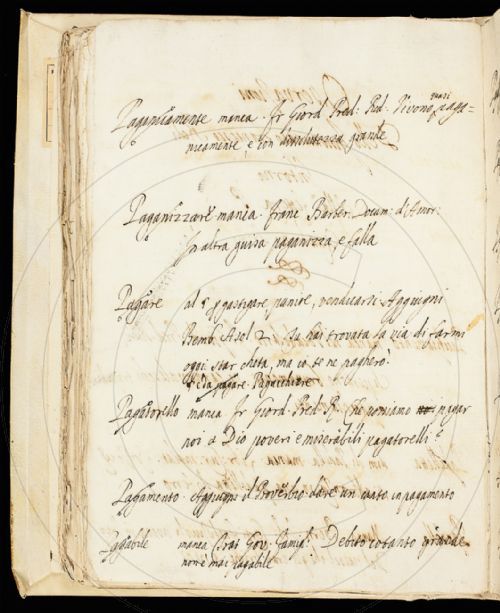 Paganicamente manca. Fr Giord. Pred: Red. Vivono quasi paga=
nicamente, e con dissolutezza grande
Paganizzare manca. Franc. Barber. Docum: d'Amor:
In altra guisa paganizza, e falla
Pagare al § p gastigare, punire, vendicarsi. Aggiugni
Bemb. Asol. 2. tu hai trovata la via di farmi
oggi star cheta, ma io te ne pagherò
§ da pagare Pagacchiare
Pagatorello manca Fr Giord. Pred. R. Che vogliamo pagar
noi a Dio poveri e miserabili pagatorelli?
Pagamento Aggiugni il Proverbio dare un in pagamento
Pagabile manca Gov. Famigl. Debito cotanto grande
non è mai pagabile